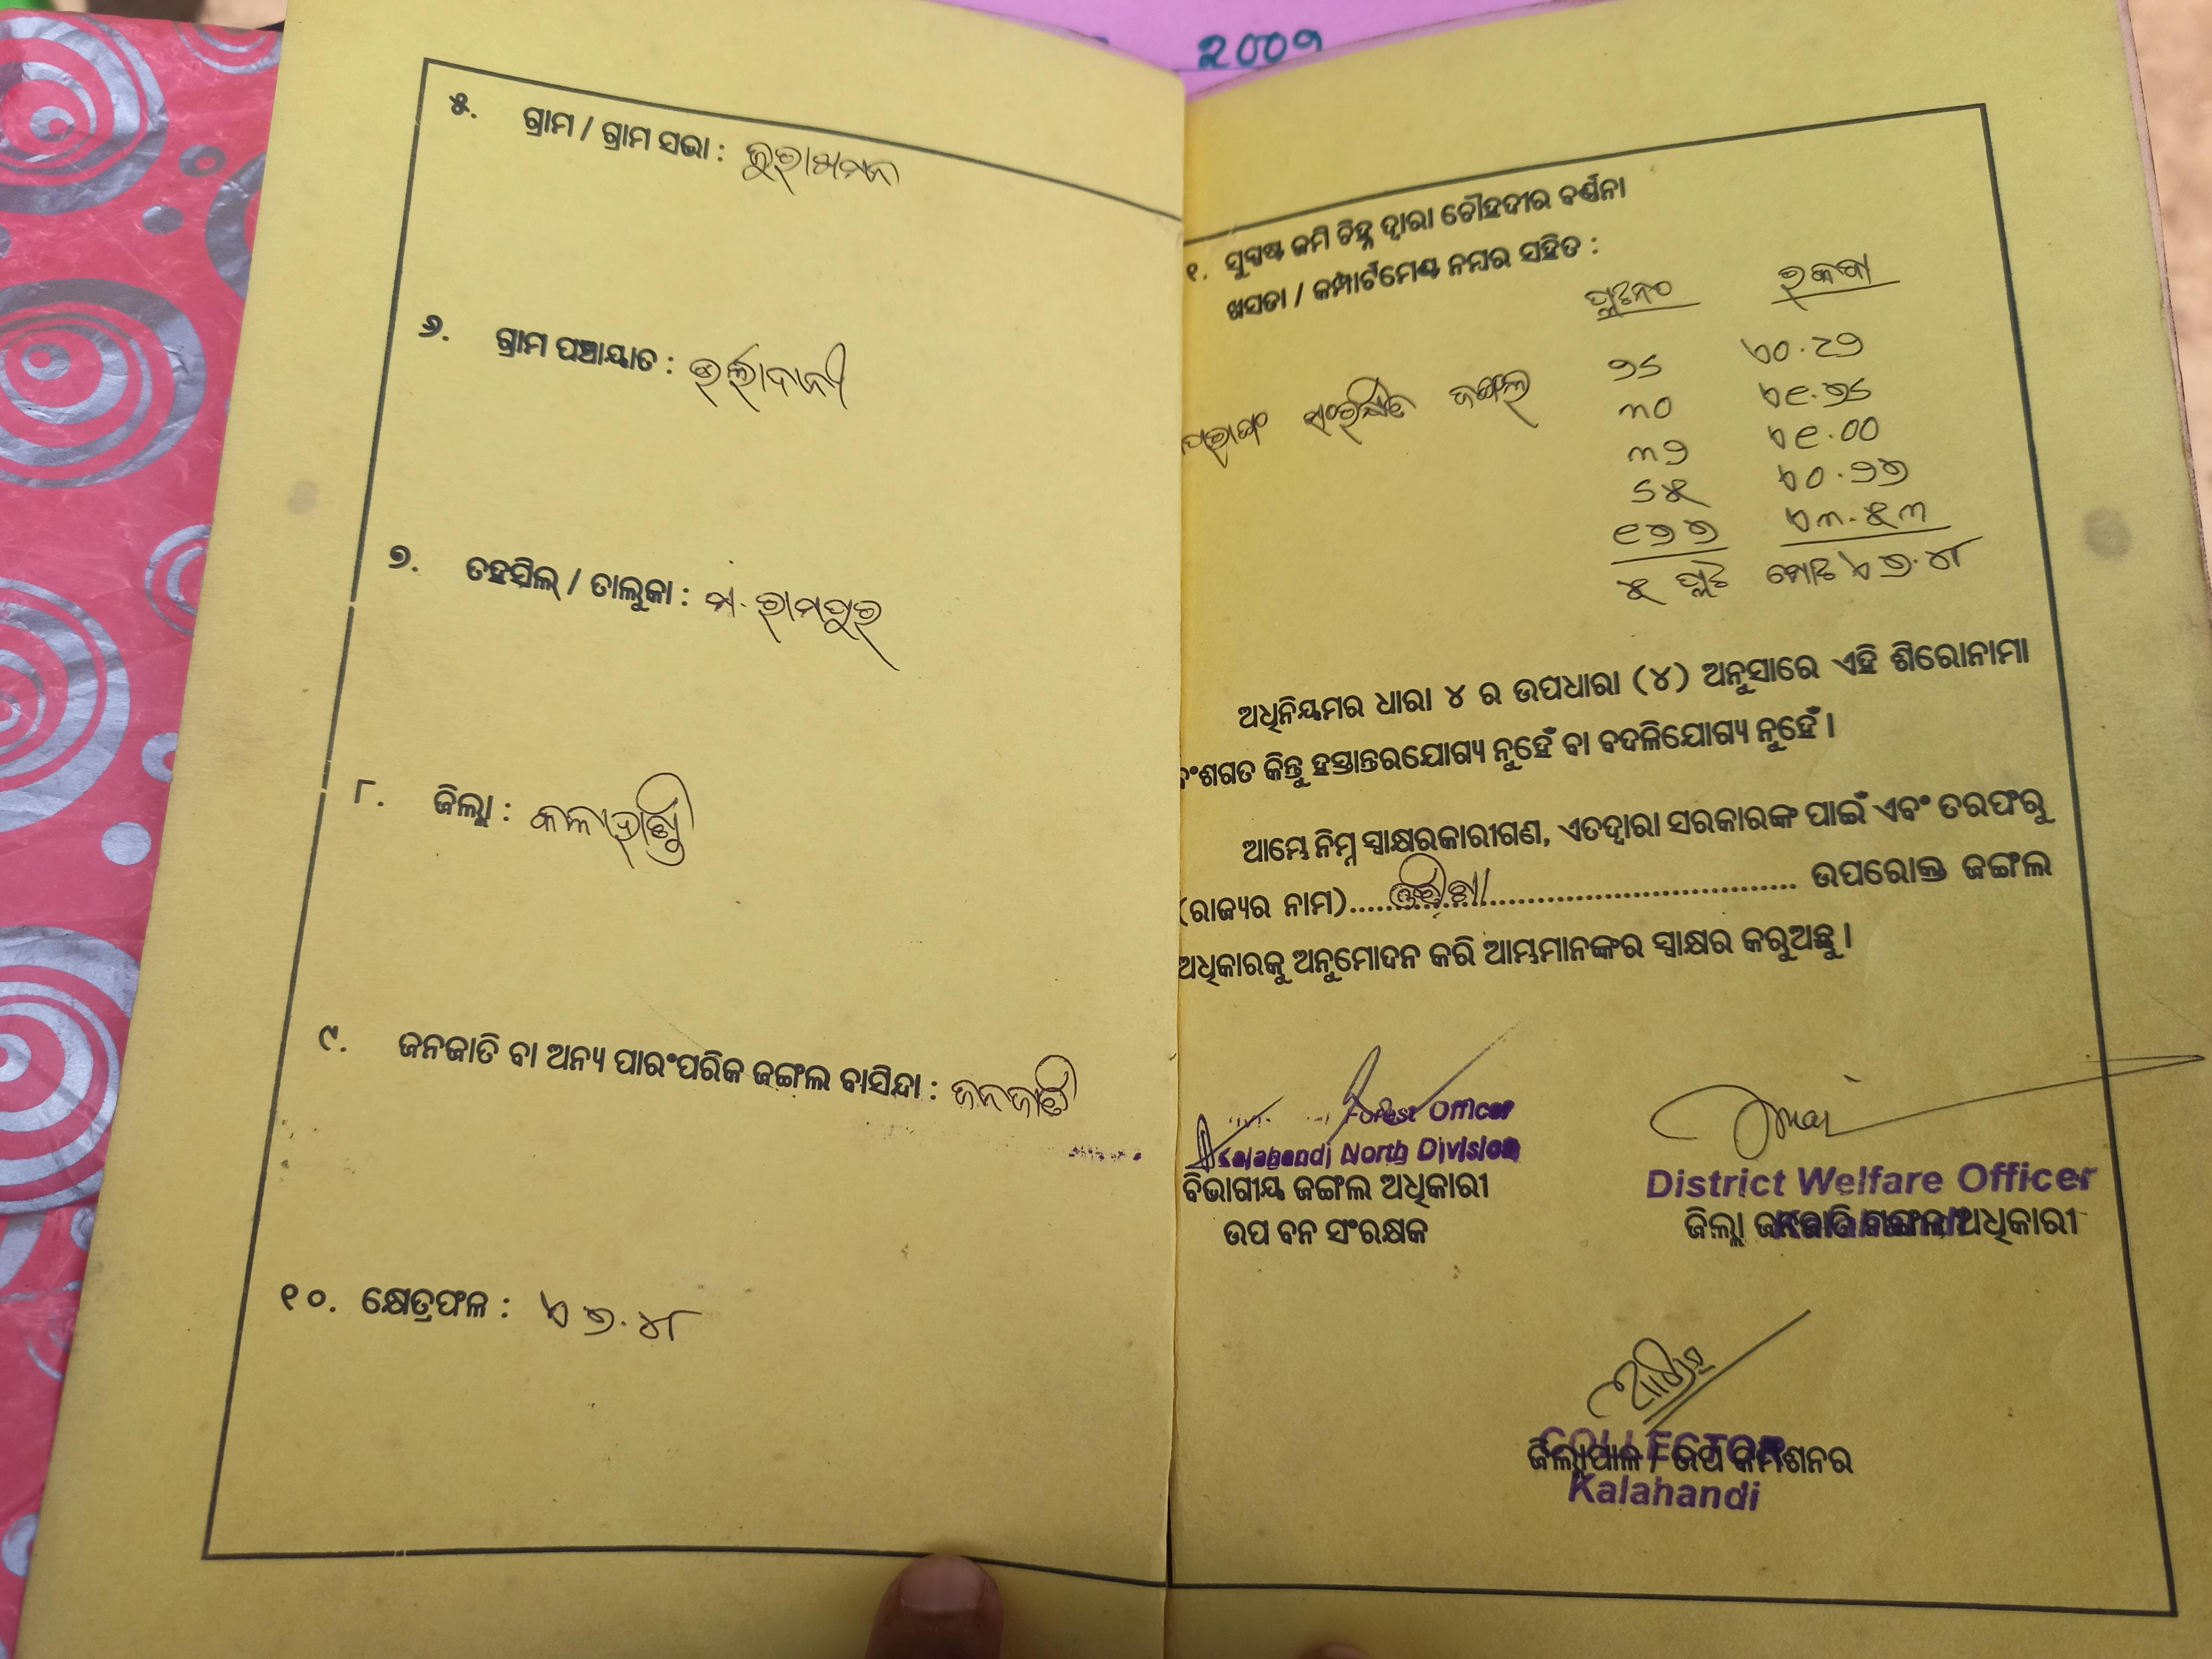 2009
୫. ଗ୍ରାମ / ଗ୍ରାମ ସଭା :
୬. ଗ୍ରାମ ପଞ୍ଚାୟାତ :
୭. ତହସିଲ୍ / ତାଲୁକା : ମ. ରାମପୁର
୮. ଜିଲ୍ଲା : କଳାହାଣ୍ଡି
୯. ଜନଜାତି ବା ଅନ୍ୟ ପାରଂପରିକ ଜଙ୍ଗଲ ବାସିନ୍ଦା : ଜନଜାତି
୧୦. କ୍ଷେତ୍ରଫଳ : ଏ ୭.୪୮
୧. ସୁସ୍ପଷ୍ଟ ଜମି ଚିହ୍ନ ଦ୍ଵାରା ଚୌହଦୀର ବର୍ଣ୍ଣନା
ଖସଡା / କମ୍ପାର୍ଟମେଣ୍ଟ ନମ୍ବର ସହିତ :
ପ୍ଲଟନଂ ରକବା
ସଂରକ୍ଷିତ ଜଙ୍ଗଲ
୩୦
ଏ ୧.୦୦
୫ ପ୍ଲଟ ମୋଟ ଏ ୭.୪୮
ଅଧିନିୟମର ଧାରା ୪ ର ଉପଧାରା (୪) ଅନୁସାରେ ଏହି ଶିରୋନାମା
ବଂଶଗତ କିନ୍ତୁ ହସ୍ତାନ୍ତରଯୋଗ୍ୟ ନୁହେଁ ବା ବଦଳିଯୋଗ୍ୟ ନୁହେଁ ।
ଆମ୍ଭେ ନିମ୍ନ ସ୍ୱାକ୍ଷରକାରୀଗଣ, ଏତଦ୍ୱାରା ସରକାରଙ୍କ ପାଇଁ ଏବଂ ତରଫରୁ
(ରାଜ୍ୟର ନାମ)..... ଓଡ଼ିଶା ..... ଉପରୋକ୍ତ ଜଙ୍ଗଲ
ଅଧିକାରକୁ ଅନୁମୋଦନ କରି ଆମ୍ଭମାନଙ୍କର ସ୍ୱାକ୍ଷର କରୁଅଛୁ ।
Forest Officer
Kalahandi North Division
ବିଭାଗୀୟ ଜଙ୍ଗଲ ଅଧିକାରୀ
ଉପ ବନ ସଂରକ୍ଷକ
District Welfare Officer
ଜିଲ୍ଲା ଜନଜାତି ମଙ୍ଗଳ ଅଧିକାରୀ
COLLECTOR
ଜିଲ୍ଲାପାଳ / ଉପ କମିଶନର
Kalahandi